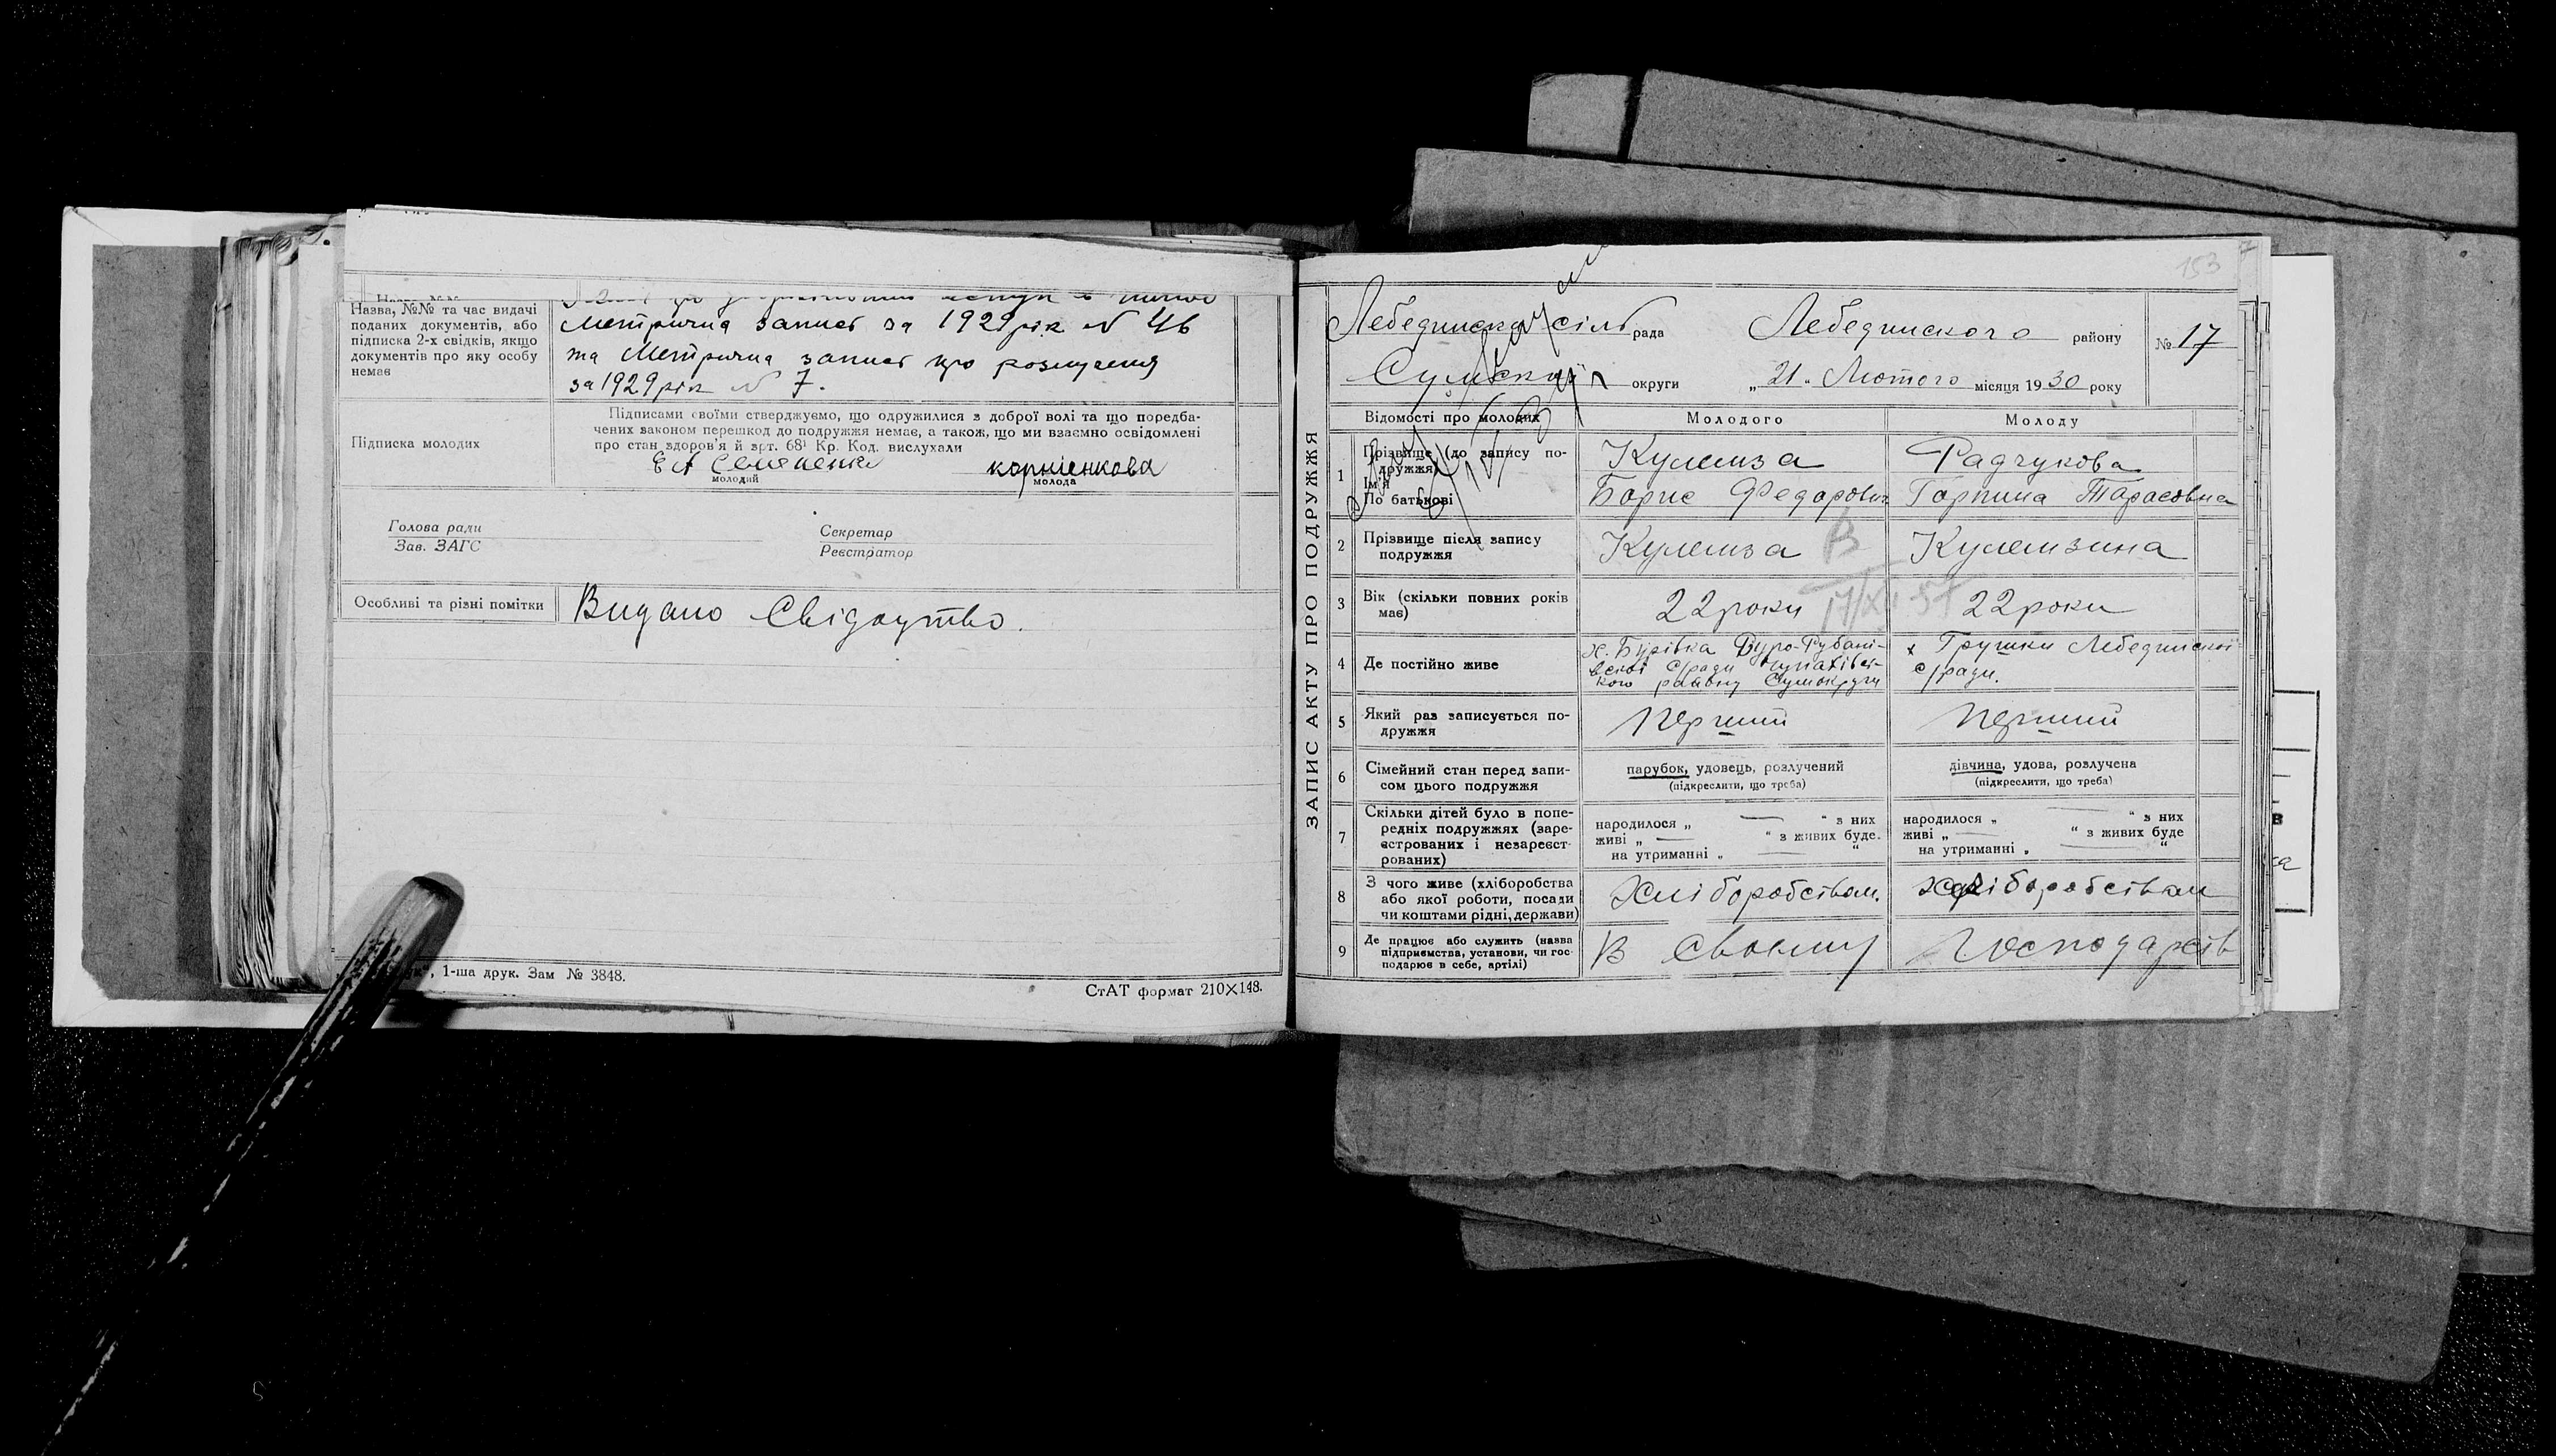 Назва, №№ та час видачі
поданих документів, або
підписка 2-х свідків, якщо
документів про яку особу
немає
Метрична запис за 1929 рік № 46
та Метрична запис про розлучення
за 1929 рік № 7.
Підписка молодих
Підписами своїми стверджуємо, що одружилися з доброї волі та що передба-
чених законом перешкод до подружжя немає, а також, що ми взаємно освідомлені
про стан здоров'я й арт. 68¹ Кр. Код. вислухали
корніенкова
молодий
молода
Голова ради
Зав. ЗАГС
Секретар
Реєстратор
Особливі та різні помітки
Видано Свідоцтво.
1-ша друк. Зам № 3848.
СтАТ формат 210×148.
153
ЗАПИС АКТУ ПРО ПОДРУЖЖЯ
Лебединська сіль рада
Лебединского району
№ 17
Сумської округи
„21„ Лютого місяця 1930 року
Відомості про молодих
Молодого
Молоду
1
Прізвище (до запису по-
дружжя)
Ім'я
По батькові
Кулємза
Борис Федорович
Радчукова
Горпина Тарасовна
2
Прізвище після запису
подружжя
Кулємза
Кулємзина
3
Вік (скільки повних років
має)
22 роки
22 роки
4
Де постійно живе
х. Бурівка Буро-Рубані-
вскої с/ради Чупахівсь-
кого району Сумокруги
х Грушки Лебединскої
с/ради.
5
Який раз записується по-
дружжя
Перший
Перший
6
Сімейний стан перед запи-
сом цього подружжя
парубок, удовець, розлучений
(підкреслити, що треба)
дівчина, удова, розлучена
(підкреслити, що треба)
7
Скільки дітей було в попе-
редніх подружжях (заре-
єстрованих і незареєст-
рованих)
народилося „ — “ з них
живі „ — “ з живих буде
на утриманні „ — “
народилося „ — “ з них
живі „ — “ з живих буде
на утриманні „ — “
8
З чого живе (хліборобства
або якої роботи, посади
чи коштами рідні, держави)
Хліборобством.
Хліборобством
9
Де працює або служить (назва
підприємства, установи, чи гос-
подарює в себе, артілі)
В своєму
Господарстві